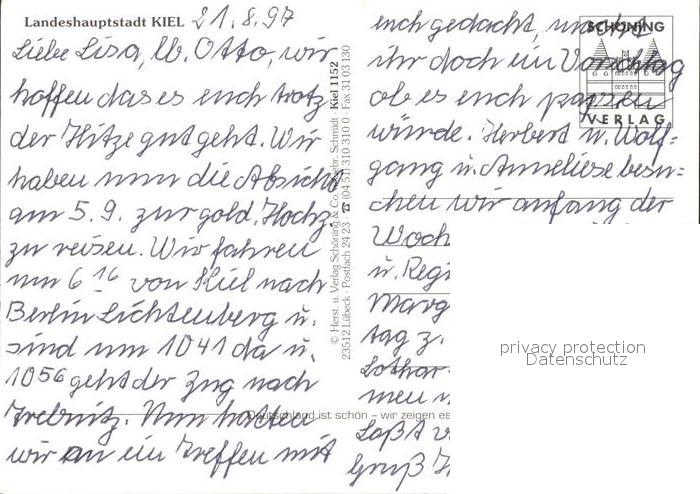 Landeshauptstadt KIEL 21.8.97
Liebe Lisa, lb. Otto, wir
hoffen das es euch trotz
der Hitze gut geht. Wir
haben nun die Absicht
am 5.9. zur gold. Hochz.
zu reisen. Wir fahren
um 6 16 von Kiel nach
Berlin Lichtenberg u.
sind um 1041 da u.
1056 geht der Zug nach
Trebnitz. Nun hatten
wir an ein Treffen mit
© Herst. u. Verlag Schöning & Co. Gebr. Schmidt · Kiel 1152
23512 Lübeck · Postfach 24 23 · ☎ (04 51) 310 310 0 · Fax 31 03 130
Deutschland ist schön – wir zeigen es
euch gedacht, macht
ihr doch ein Vorschlag
ob es euch passen
würde. Herbert u. Wolf=
gang u. Anneliese besu=
chen wir anfang der
Woch
u. Regi
Marg
tag z.
Lothar
men
Laßt
Gruß
SCHÖNING
VERLAG
privacy protection
Datenschutz